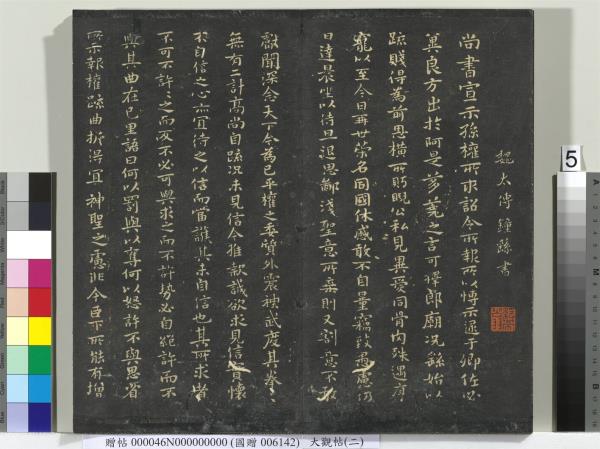 魏太傅鍾繇書
尚書宣示孫權所求詔令所報所以博示逮于卿佐必
冀良方出於阿是芻蕘之言可擇郎廟況繇始以
疏賤得為前恩橫所盼睨公私見異愛同骨肉殊遇厚
寵以至今日再世榮名同國休慼敢不自量竊致愚慮仍
日達晨坐以待旦退思鄙淺聖意所棄則又割意不敢
獻聞深念天下今為已平權之委質外震神武度其拳〻
無有二計高尚自疏況未見信今推款誠欲求見信實懷
不自信之心亦宜待之以信而當護其未自信也其所求者
不可不許〻之而反不必可與求之而不許勢必自絕許而不
與其曲在己里語曰何以罰與以奪何以怒許不與思省
所示報權疏曲折得宜神聖之慮非今臣下所能有增
5
贈帖 000046N000000000 (國贈 006142) 大觀帖(二)